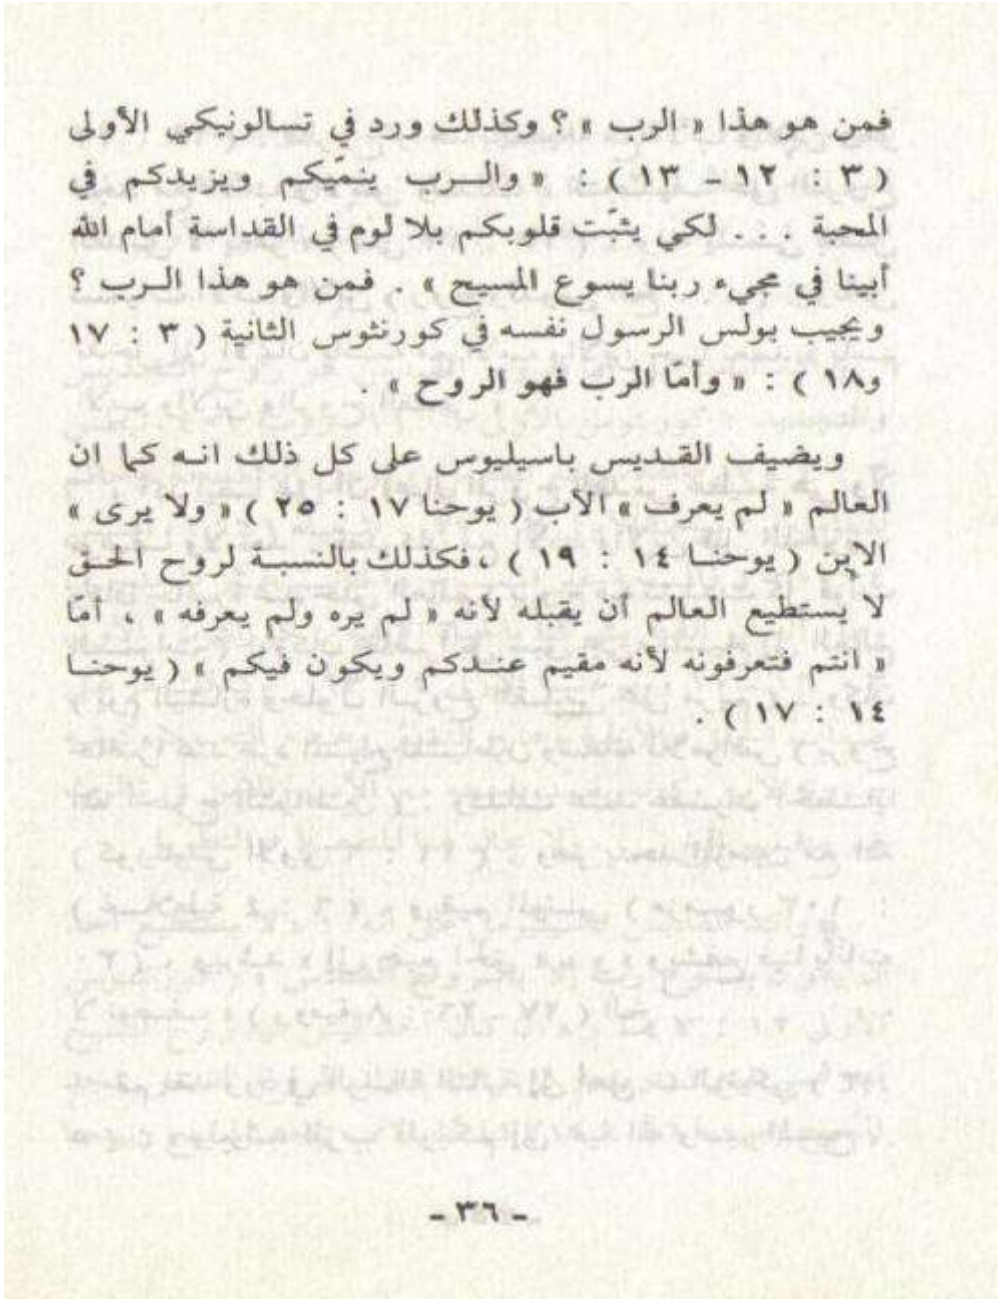 فمن هو هذا « الرب » ؟ وكذلك ورد في تسالونيكي الأولى
( ٣ : ١٢ - ١٣ ) : « والـرب ينمّيكم ويزيدكم في
المحبة . . . لكي يثبّت قلوبكم بلا لوم في القداسة أمام الله
أبينا في مجيء ربنا يسوع المسيح » . فمن هو هذا الـرب ؟
ويجيب بولس الرسول نفسه في كورنثوس الثانية ( ٣ : ١٧
و١٨ ) : « وأمّا الرب فهو الروح » .
ويضيف القـديس باسيليوس على كل ذلك انـه كما ان
العالم « لم يعرف » الآب ( يوحنا ١٧ : ٢٥ ) « ولا يرى »
الإبن ( يوحنـا ١٤ : ١٩ ) ، فكذلك بالنسبـة لروح الحـق
لا يستطيع العالم أن يقبله لأنه « لم يره ولم يعرفه » ، أمّا
« انتم فتعرفونه لأنه مقيم عنـدكم ويكون فيكم » ( يوحنـا
١٤ : ١٧ ) .
- ٣٦ -